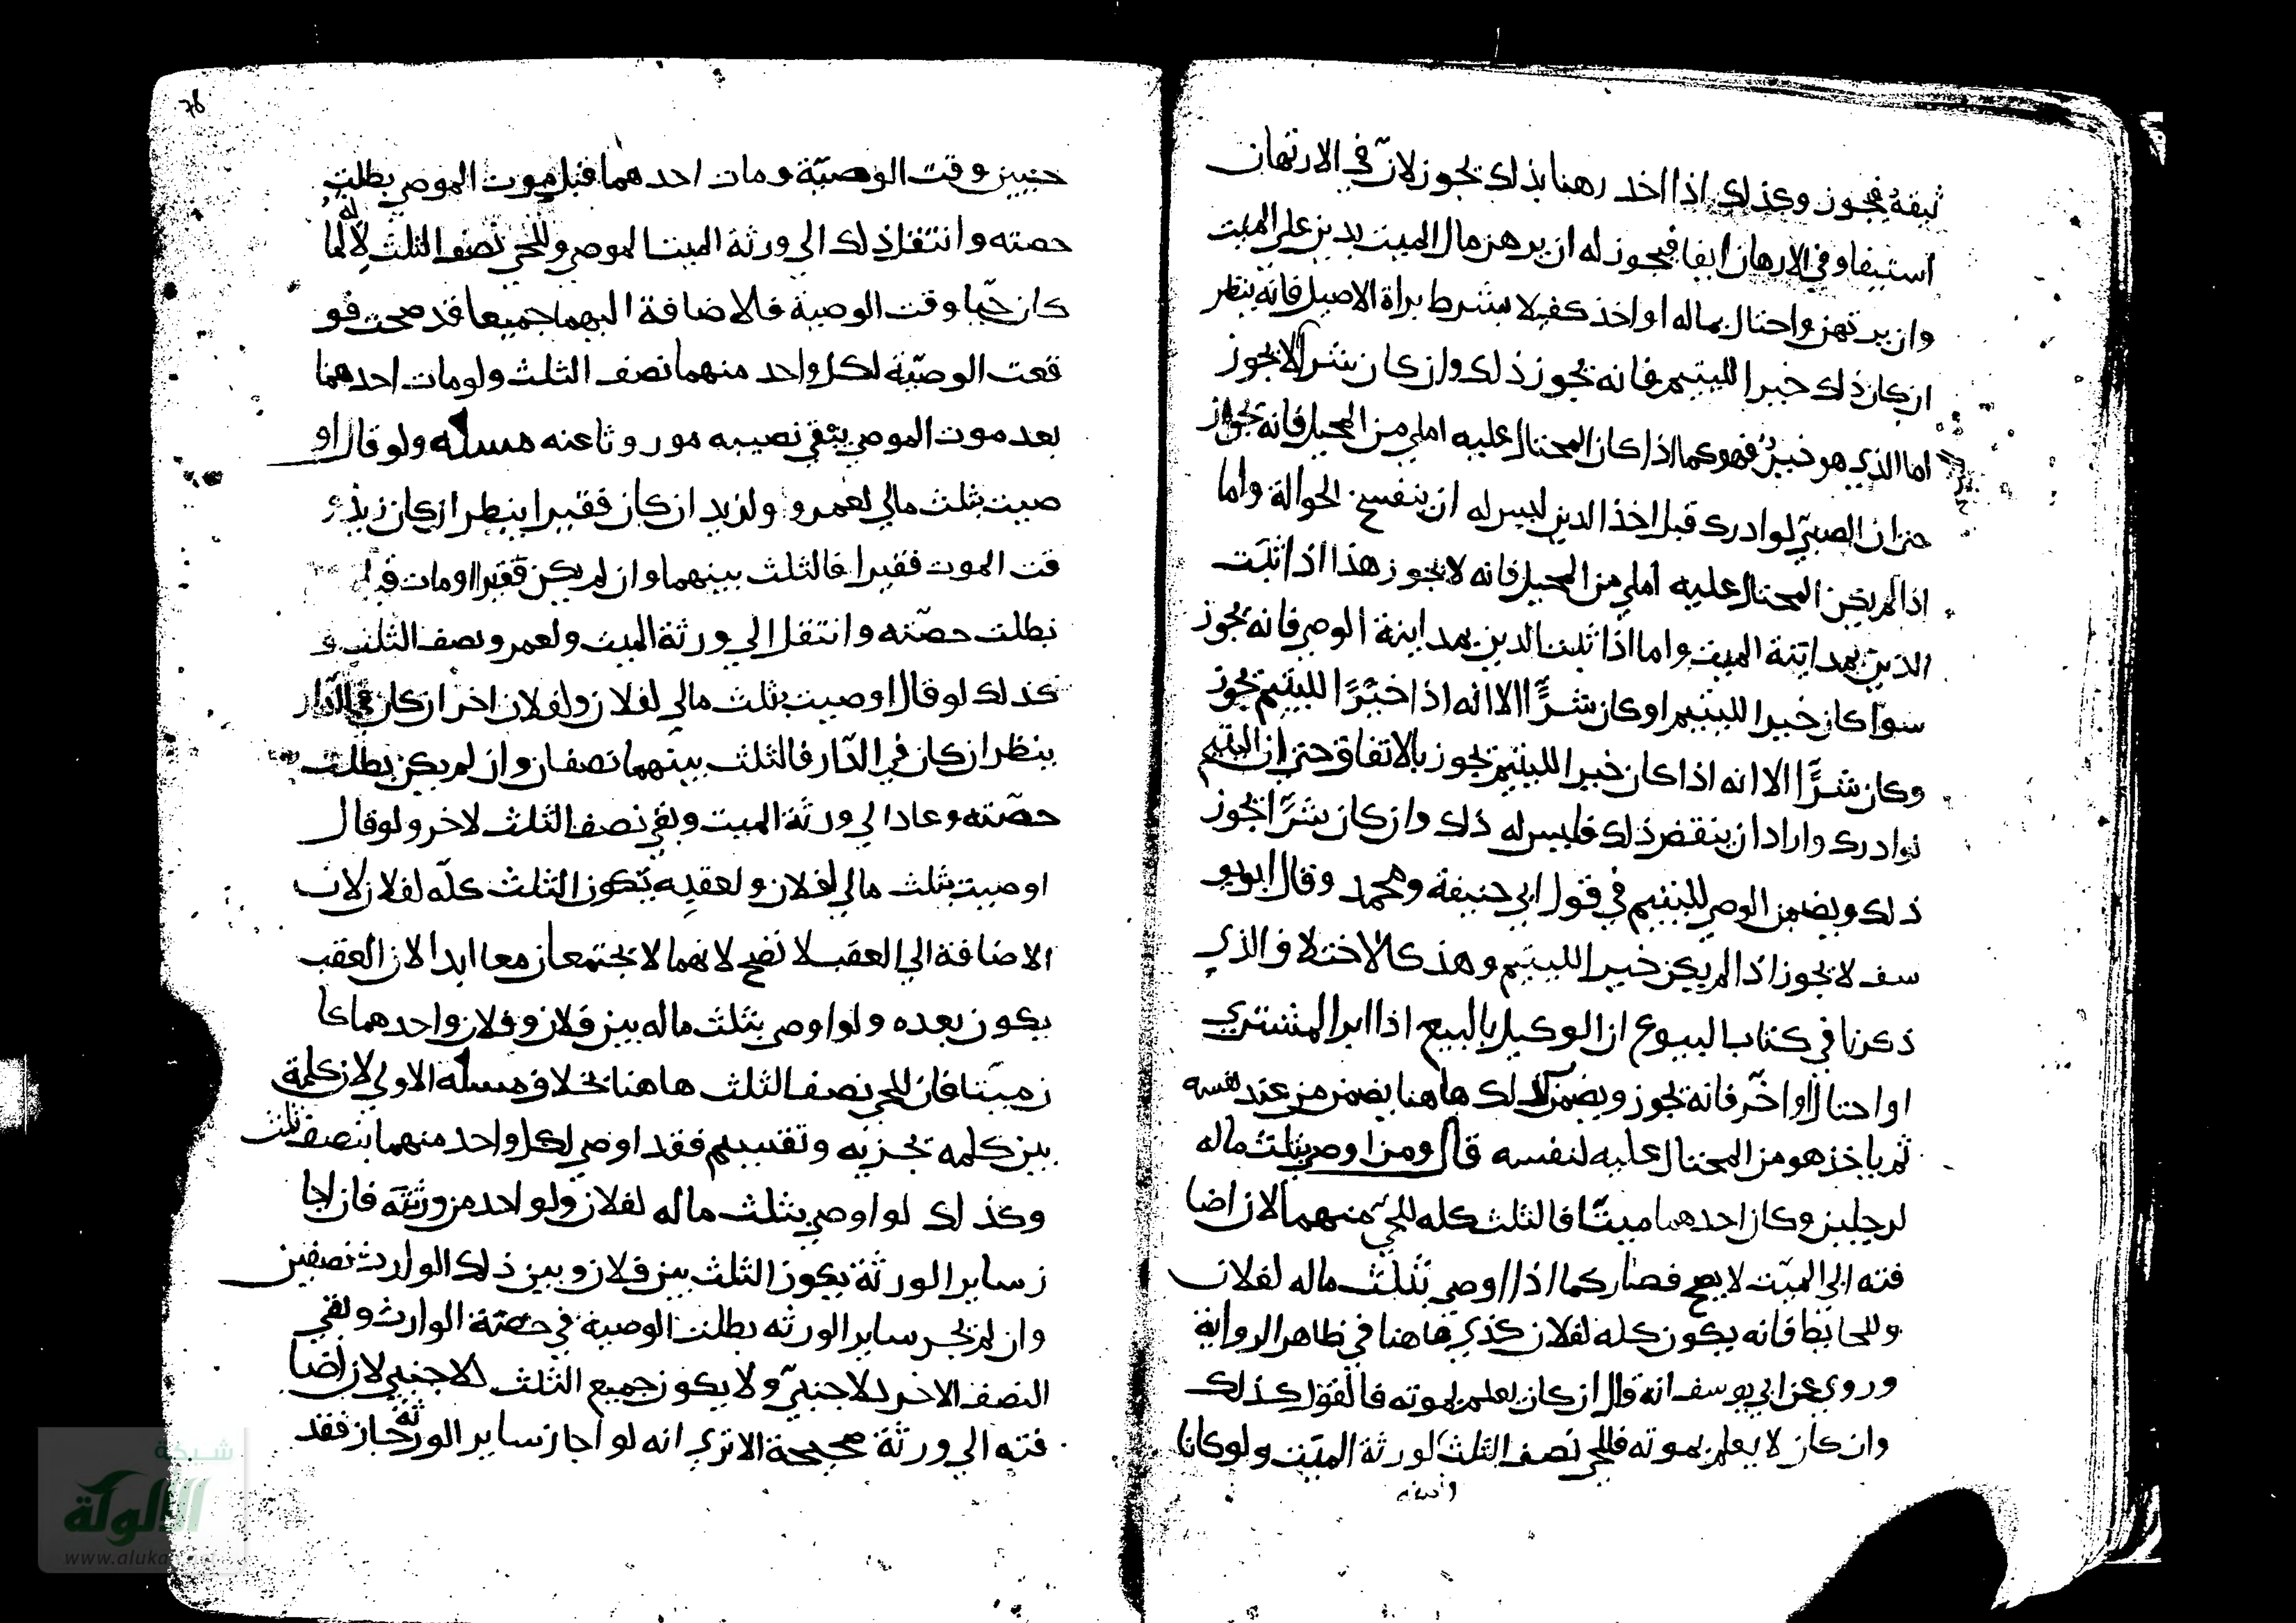 ثيقة فيجوز وكذلك اذا اخد رهنا بذلك يجوز لانّ في الارتهان
استيفا وفي الارهان ايفا فيجوز له ان يرهن مال الميت بدين على الميت
وان يرتهن واحتال بماله او اخذ كفيلا بشرط براة الاصيل فانه ينظر
ان كان ذلك خيرا لليتيم فانه يجوز ذلك وان كان شرا لا يجوز
اما الذي هو خير فهو كما اذا كان المحتال عليه املي من المحيل فانه يجوز
حتى ان الصبيّ لو ادرك قبل اخذ الدين ليس له ان ينفسخ الحوالة واما
اذا لم يكن المحتال عليه املي من المحيل فانه لا يجوز هذا اذا ثبت
الدين بمداينة الميت واما اذا ثبت الدين بمداينة الوصي فانه يجوز
سوا كان خيرا لليتيم او كان شرًّا الا انه اذا خيرًا لليتيم يجوز
وكان شرًّا الا انه اذا كان خيرا لليتيم يجوز بالاتفاق حتى ان اليتيم
لو ادرك واراد ان ينقض ذلك فليس له ذلك وان كان شرًّا يجوز
ذلك ويضمن الوصي لليتيم في قول ابي حنيفة ومحمد وقال ابو يو
سف لا يجوز اذا لم يكن خيرا لليتيم وهذ كالاختلاف الذي
ذكرنا في كتاب البيوع ان الوكيل بالبيع اذا ابرا المشتري
او احتال او اخّر فانه يجوز ويضمن كذلك هاهنا يضمن من عند نفسه
ثم ياخذ هو من المحتال عليه لنفسه قال ومن اوصي بثلث ماله
لرجلين وكان احدهما ميتًا فالثلث كله للحي منهما لان اضا
فته الي الميّت لا يصح فصار كما اذا اوصي بثلث ماله لفلان
وللحايط فانه يكون كله لفلان كذي هاهنا في ظاهر الرواية
وروي عن ابي يوسف انه قال ان كان يعلم بموته فالقول كذلك
وان كان لا يعلم بموته فللحي نصف الثلث لورثة الميّت ولو كانا
78
حيين وقت الوصيّة ومات احدهما قبل موت الموصي بطلت
حصته وانتقل ذلك الي ورثة الميت الموصي وللحي نصف الثلث لانه لما
كان حيّا وقت الوصية فالاضافة اليهما جميعا قد صحت فو
قعت الوصيّة لكل واحد منهما نصف الثلث ولو مات احدهما
بعد موت الموصي يبقي نصيبه موروثا عنه مسئله ولو قال او
صيت بثلث مالي لعمرو ولزيد ان كان فقيرا ينظر ان كان زيد و
قت الموت فقيرا فالثلث بينهما وان لم يكن فقيرا او مات قبل
بطلت حصّته وانتقل الي ورثة الميت ولعمرو نصف الثلث و
كذلك لو قال اوصيت بثلث مالي لفلان ولفلان اخر ان كان في الدّار
ينظر ان كان في الدّار فالثلث بينهما نصفان وان لم يكن بطلت
حصّته وعاد الي ورثة الميت وبقي نصف الثلث لاخر ولو قال
اوصيت بثلث مالي لفلان ولعقبه يكون الثلث كلّه لفلان لان
الاضافة الي العقب لا تصح لانهما لا يجتمعان معا ابدا لان العقب
يكون بعده ولو اوصي بثلث ماله بين فلان وفلان واحدهما كا
ن ميّتا فان للحي نصف الثلث هاهنا بخلاف مسئله الاولي لان كلمة
بين كلمه تجزيه وتقسيم فقد اوصي لكل واحد منهما بنصف ثلث
وكذلك لو اوصي بثلث ماله لفلان ولواحد من ورثته فان اجا
ز ساير الورثة يكون الثلث بين فلان وبين ذلك الوارث نصفين
وان لم يجز ساير الورثه بطلت الوصية في حصّة الوارث وبقي
النصف الاخر للاجنبيّ ولا يكون جميع الثلث للاجنبي لان اضا
فته الي ورثة صحيحة الا تري انه لو اجاز ساير الورثة جاز فقد
شبكة
الألوكة